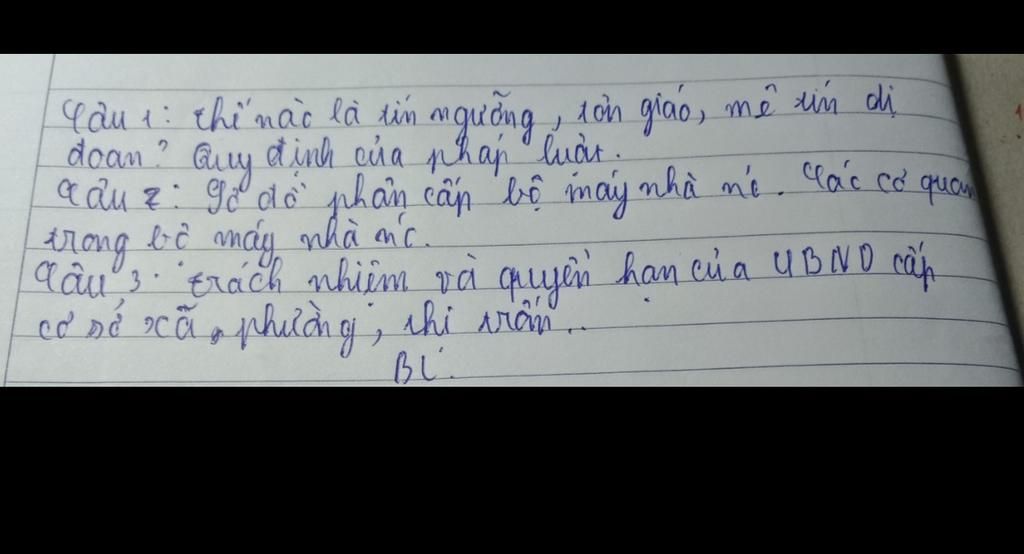 Câu 1: thế nào là tín ngưỡng, tôn giáo, mê tín dị
đoan? Quy định của pháp luật.
Câu 2: Sơ đồ phân cấp bộ máy nhà nc. Các cơ quan
trong bộ máy nhà nc.
Câu 3: trách nhiệm và quyền hạn của UBND cấp
cơ sở xã, phường, thị trấn..
BL.